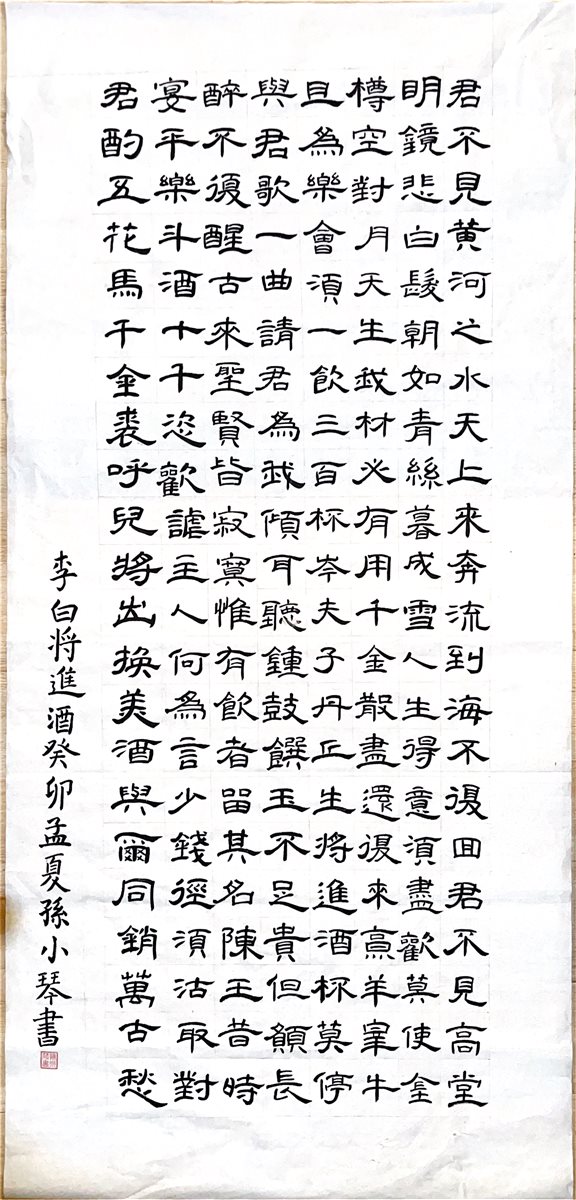 君不見黄河之水天上來奔流到海不復囬君不見高堂
明鏡悲白髮朝如青絲暮成雪人生得意須盡歡莫使金
樽空對月天生我材必有用千金散盡還復來烹羊宰牛
且為樂會須一飲三百杯岑夫子丹丘生將進酒杯莫停
與君歌一曲請君為我傾耳聽鍾鼓饌玉不足貴但願長
醉不復醒古來聖賢皆寂寞惟有飲者留其名陳王昔時
宴平樂斗酒十千恣歡謔主人何為言少錢徑須沽取對
君酌五花馬千金裘呼兒將出換美酒與爾同銷萬古愁
李白将進酒癸卯孟夏孫小琴書